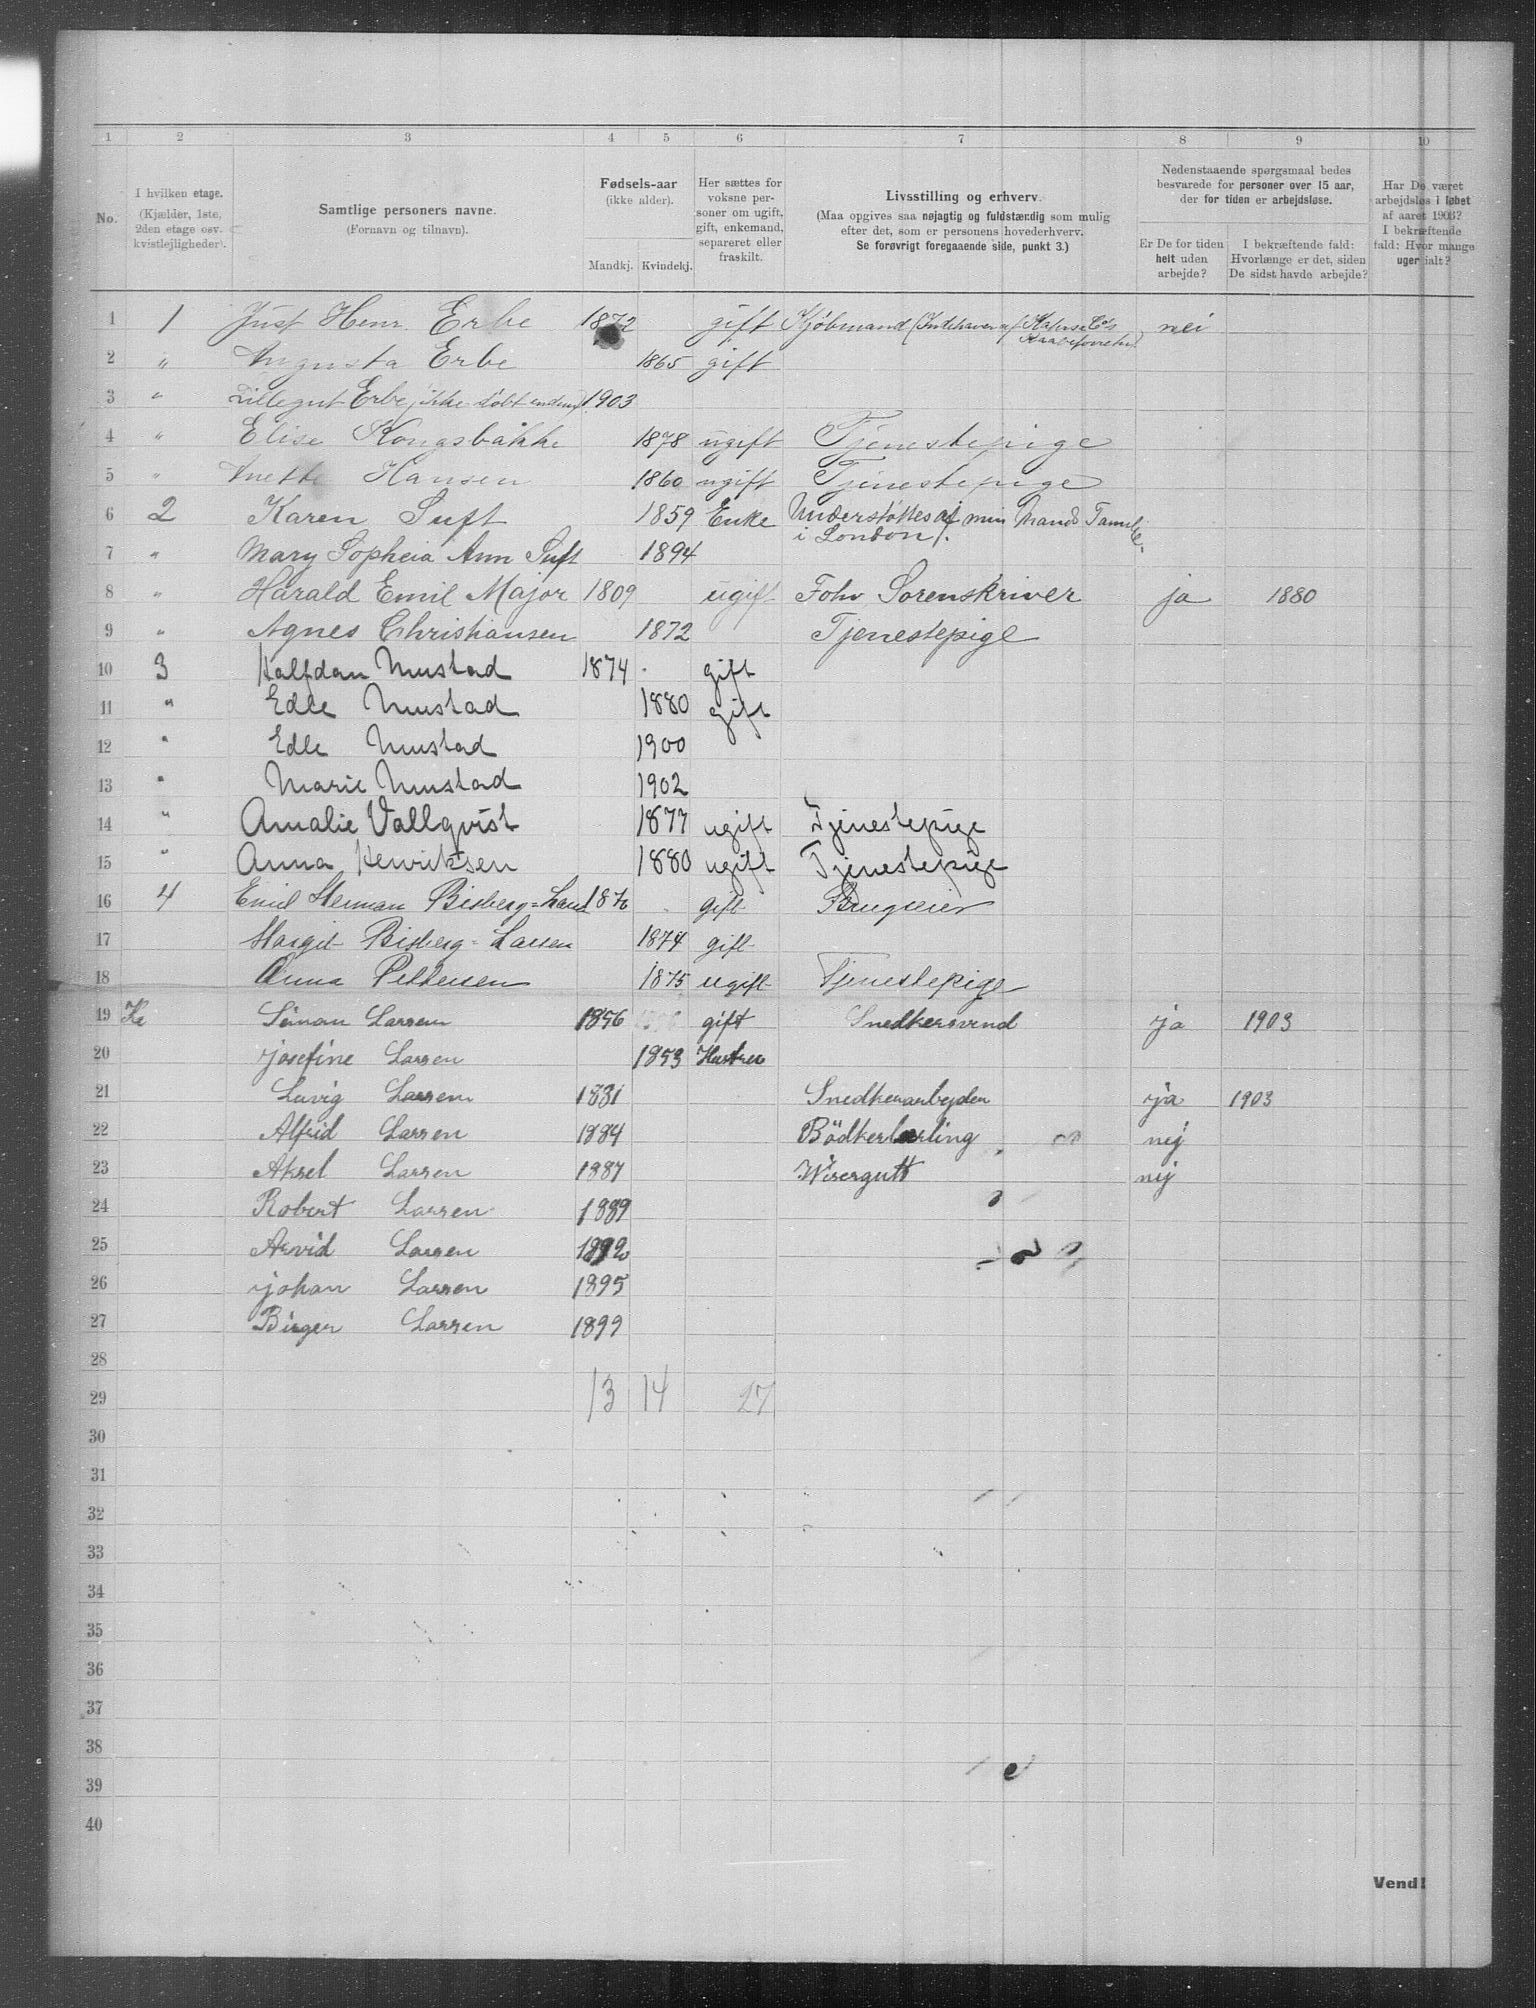 1 2 3 4 5 6 7 8 9 10
No.
I hvilken etage.
(Kjælder, 1ste,
2den etage osv.
kvistlejligheder).
Samtlige personers navne.
(Fornavn og tilnavn).
Fødsels-aar
(ikke alder).
Mandkj. Kvindekj.
Her sættes for
voksne per-
soner om ugift,
gift, enkemand,
separeret eller
fraskilt.
Livsstilling og erhverv.
(Maa opgives saa nøjagtig og fuldstændig som mulig
efter det, som er personens hovederhverv.
Se forøvrigt foregaaende side, punkt 3.)
Nedenstaaende spørgsmaal bedes
besvarede for personer over 15 aar,
der for tiden er arbejdsløse.
Er De for tiden
helt uden
arbejde?
I bekræftende fald:
Hvorlænge er det, siden
De sidst havde arbejde?
Har De været
arbejdsløs i løbet
af aaret 1903?
I bekræftende
fald: Hvor mange
uger ialt?
1 1 Just Henr. Erbe 1872 gift Kjöbmand (Indehaver af nei
2 " Augusta Erbe 1865 gift
3 " Lillegut Erbe (ikke döbt endnu) 1903
4 " Elise Kongsbakke 1878 ugift Tjenestepige
5 " Anette Hansen 1860 ugift Tjenestepige
6 2 Karen Suft 1859 Enke Understøttes af min Mands Familie
i London).
7 " Mary Sopheia Ann Suft 1894
8 " Harald Emil Major 1809 ugift Fohv Sorenskriver ja 1880
9 " Agnes Christiansen 1872 Tjenestepige
10 3 Halfdan Mustad 1874 gift
11 " Edle Mustad 1880 gift
12 " Edle Mustad 1900
13 " Marie Mustad 1902
14 " Amalie Vallqvist 1877 ugift Tjenestepige
15 " Anna Henriksen 1880 ugift Tjenestepige
16 4 Emil Herman Bisberg-Lars 1870 gift Brugseier
17 Margit Bisberg-Larsen 1874 gift
18 Anna Pettersen 1875 ugift Tjenestepige
19 Kæ Siman Larsen 1856 gift Snedkersvend ja 1903
20 Josefine Larsen 1853 Hustru
21 Luvig Larsen 1881 Snedkerarbejder ja 1903
22 Alfrid Larsen 1884 Bödkerlærling nej
23 Aksel Larsen 1887 Visergutt nej
24 Robert Larsen 1889
25 Arvid Larsen 1892
26 Johan Larsen 1895
27 Birger Larsen 1899
28
29 13 14 27
30
31
32
33
34
35
36
37
38
39
40
Vend!